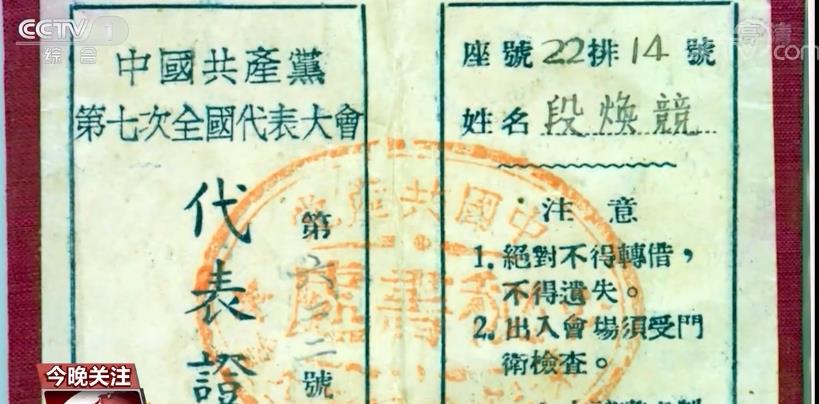 CCTV 1
综合
高清
com
中國共產黨
第七次全國代表大會
代表證
第六二二號
座號22排14號
姓名 段煥競
注意
1. 絕對不得轉借，
不得遺失。
2. 出入會場須受門
衛檢查。
中國共產黨
今晚关注